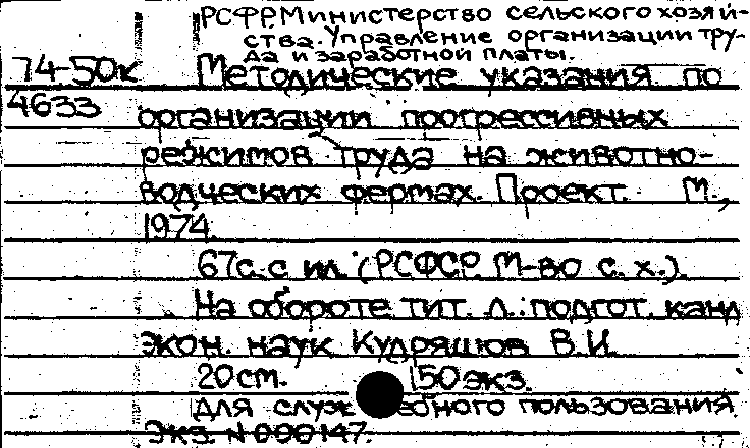 РСФСР. Министерство сельского хозяй-
ства. Управление организации тру-
да и заработной платы.
74-50к Методические указания по
4633 организации прогрессивных
режимов труда на животно-
водческих фермах. Проект. М.,
1974.
67с. с ил. (РСФСР. М-во с. х.).
На обороте тит. л.: подгот. канд
экон. наук Кудряшов В.И.
20см. 150экз.
Для служебного пользования
Экз. N 000147.